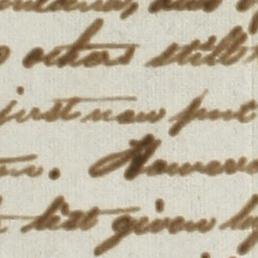 others still
just now put
However
list given by